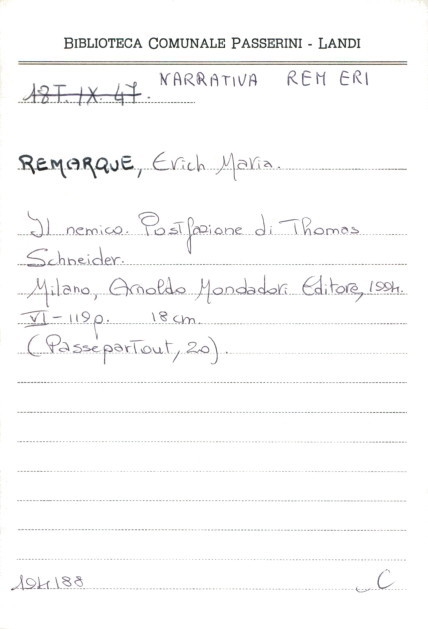 BIBLIOTECA COMUNALE PASSERINI - LANDI
NARRATIVA REM ERI
18T. IX. 47.
REMARQUE, Erich Maria.
Il nemico. Postfazione di Thomas
Schneider.
Milano, Arnoldo Mondadori Editore, 1994.
VI-119p. 18 cm.
(Passepartout, 20).
194188
C